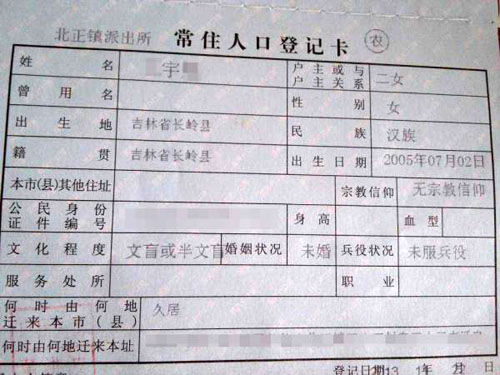 北正镇派出所 常住人口登记卡 农
姓名 宇 户主或与户主关系 二女
曾用名 性别 女
出生地 吉林省长岭县 民族 汉族
籍贯 吉林省长岭县 出生日期 2005年07月02日
本市(县)其他住址 宗教信仰 无宗教信仰
公民身份证件编号 身高 血型
文化程度 文盲或半文盲 婚姻状况 未婚 兵役状况 未服兵役
服务处所 职业
何时由何地迁来本市(县) 久居
何时由何地迁来本址
登记日期